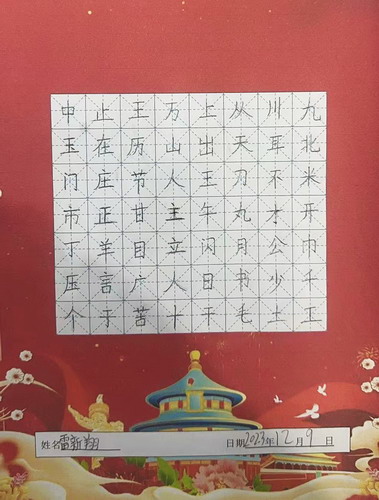 中止王万上从川九
玉在历山出天耳北
门庄节人王刃不米
市正甘主午丸才牙
丁羊目立闪月公巾
压言广人日书少千
个于苦十干毛土工
姓名雷新翔 日期2023年12月9日